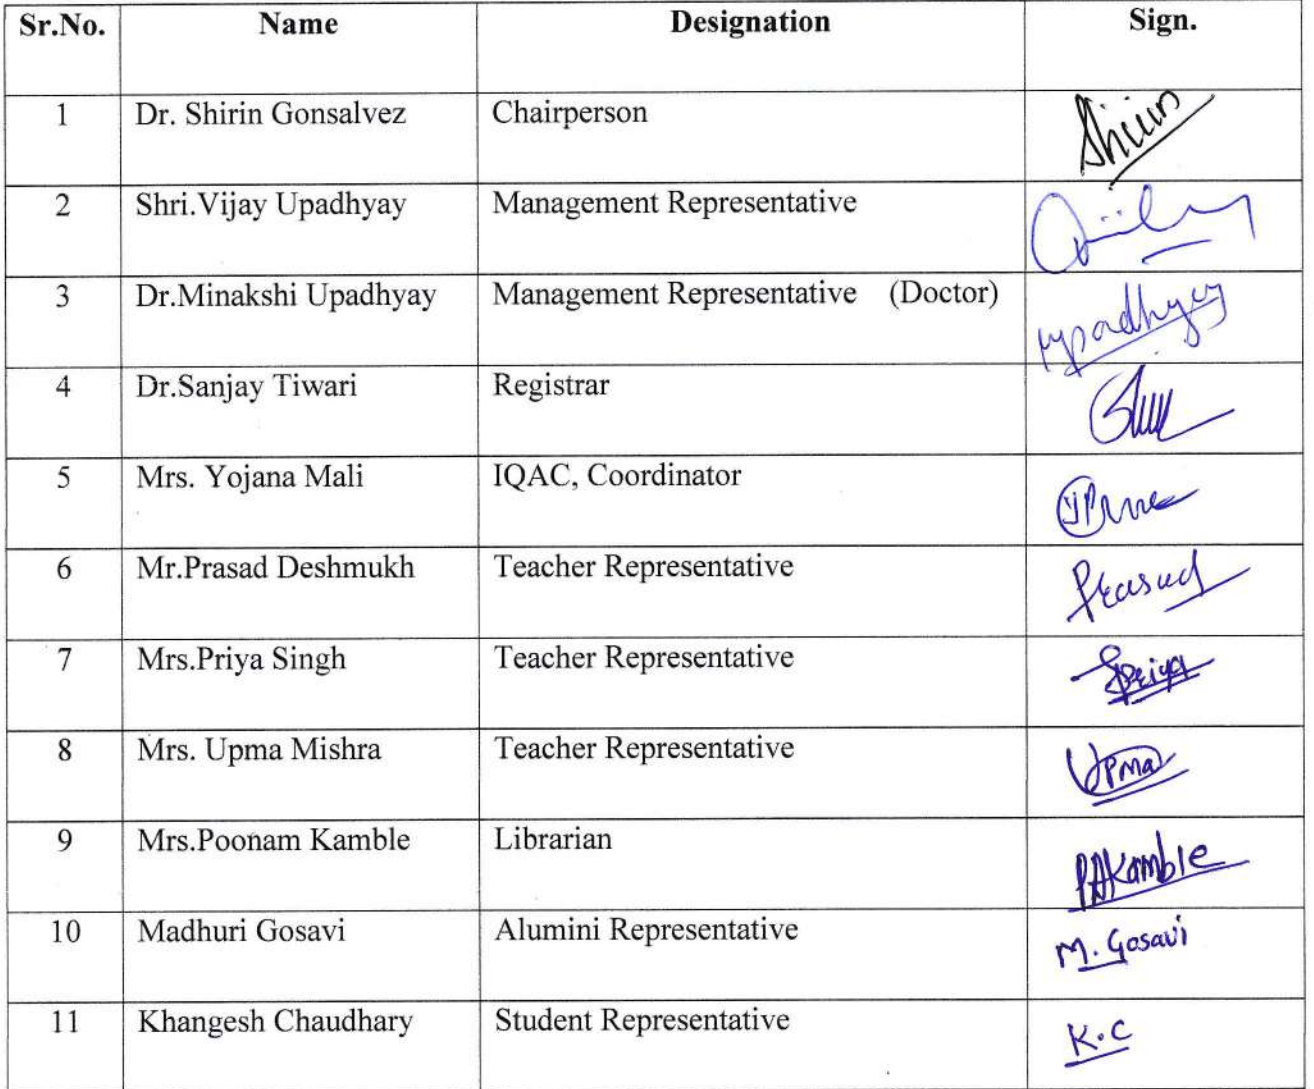 Sr.No. Name Designation Sign.
1 Dr. Shirin Gonsalvez Chairperson Shirin
2 Shri.Vijay Upadhyay Management Representative
3 Dr.Minakshi Upadhyay Management Representative (Doctor) upadhyay
4 Dr.Sanjay Tiwari Registrar
5 Mrs. Yojana Mali IQAC, Coordinator
6 Mr.Prasad Deshmukh Teacher Representative Prasad
7 Mrs.Priya Singh Teacher Representative Priya
8 Mrs. Upma Mishra Teacher Representative Upma
9 Mrs.Poonam Kamble Librarian PAKamble
10 Madhuri Gosavi Alumini Representative M. Gosavi
11 Khangesh Chaudhary Student Representative K.C